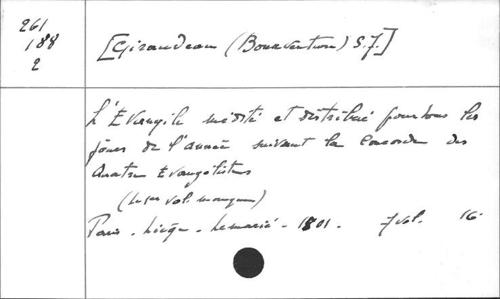 261
188
2
[Giraudeau (Bonaventure) S.J.]
L'Evangile médité et distribué pour tous les
jours de l'année suivant la Concorde des
Quatre Evangélistes
(Le 1er vol. manque)
Paris - Liège - Lemarié - 1801. 7 vol. 16.